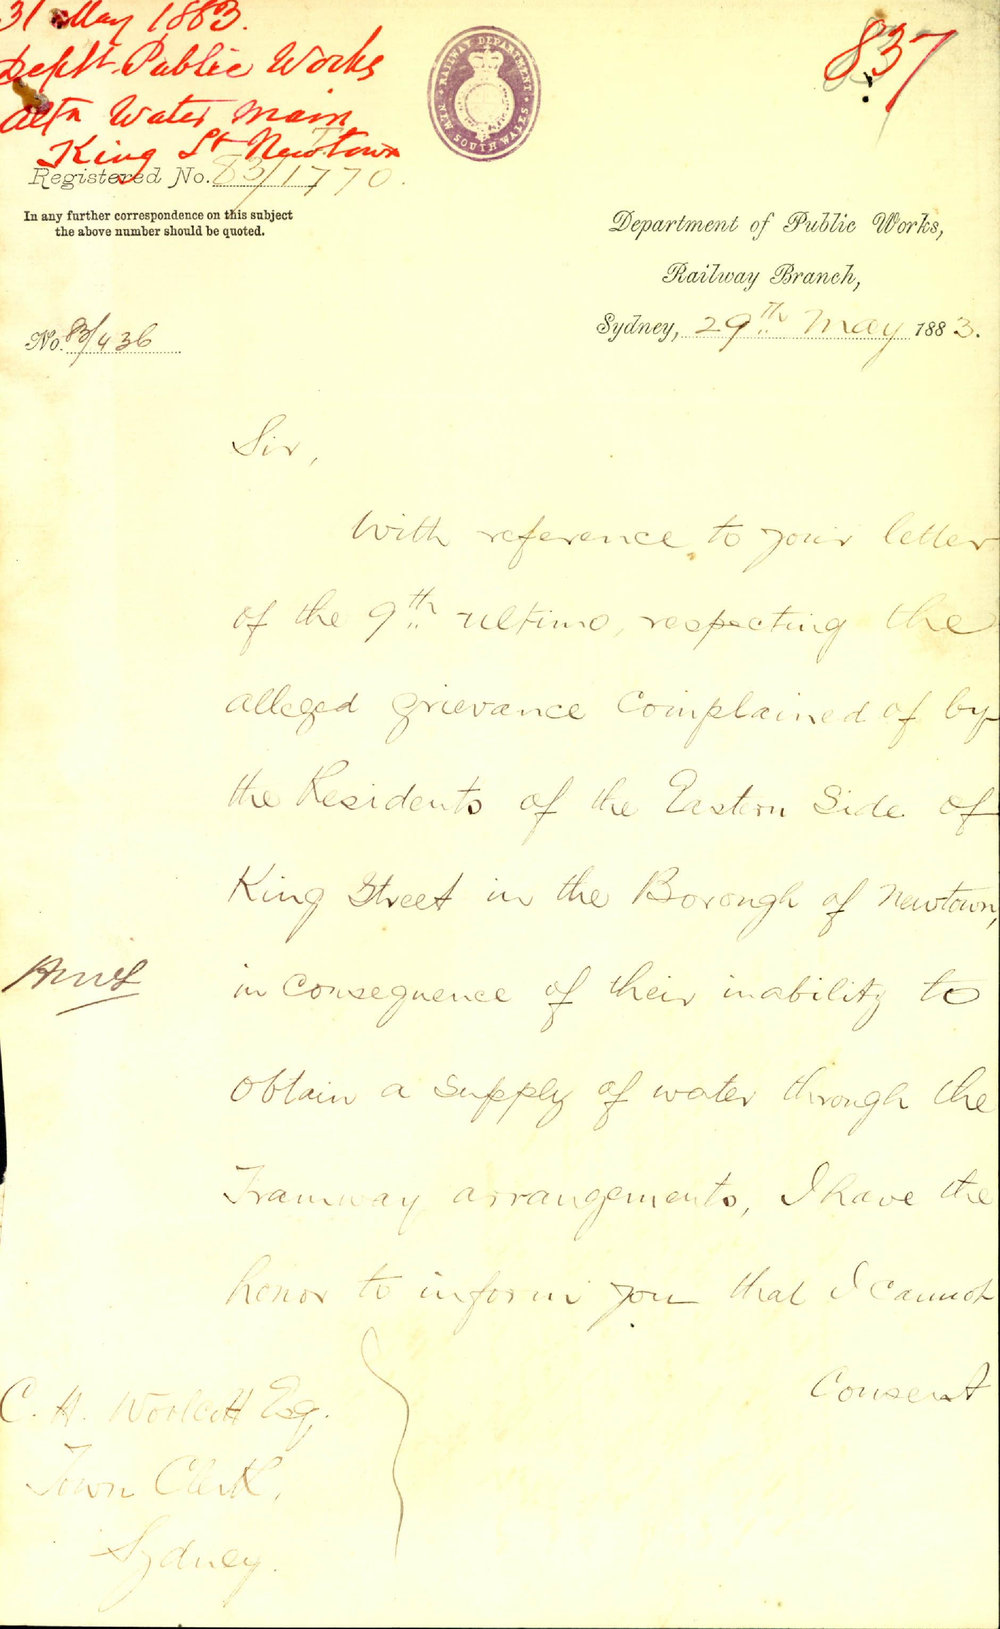 31 May 1883.
Deptt Public Works
altn Water main
King St Newtown
837
RAILWAY DEPARTMENT
NEW SOUTH WALES
Registered No. 83/1770.
In any further correspondence on this subject
the above number should be quoted.
Department of Public Works,
Railway Branch,
Sydney, 29th May 1883.
No. 83/436
Sir,
With reference to your letter
of the 9th ultimo, respecting the
alleged grievance complained of by
the Residents of the Eastern Side of
King Street in the Borough of Newtown,
in consequence of their inability to
obtain a supply of water through the
Tramway arrangements, I have the
honor to inform you that I cannot
consent
C. H. Woolcott Esq.
Town Clerk,
Sydney.